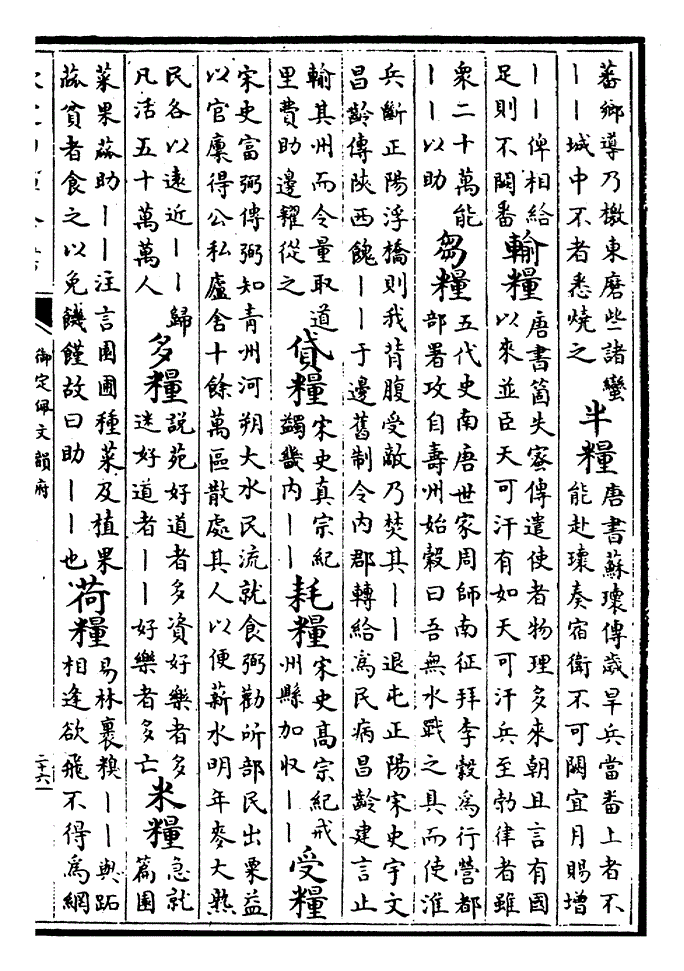 蕃鄉導乃檄東磨些諸蠻
丨丨城中不者悉燒之
半糧
唐書蘇瓌傳歲旱兵當畨上者不
能赴瓌奏宿衛不可闕宜月賜增
丨丨俾相給
足則不闕畨
輸糧
唐書箇失蜜傳遣使者物理多來朝且言有國
以來並臣天可汗有如天可汗兵至勃律者雖
衆二十萬能
丨丨以助
芻糧
五代史南唐世家周師南征拜李穀爲行營都
部署攻自壽州始穀曰吾無水戰之具而使淮
兵斷正陽浮橋則我背腹受敵乃焚其丨丨退屯正陽宋史宇文
昌齡傳陝西餽丨丨于邊舊制令內郡轉給爲民病昌齡建言止
輸其州而令量取道
里費助邊糴從之
貸糧
宋史真宗紀
蠲畿內丨丨
耗糧
宋史高宗紀戒
州縣加収丨丨
受糧
宋史富弼傳弼知青州河朔大水民流就食弼勸所部民出粟益
以官廩得公私廬舍十餘萬區散處其人以便薪水明年麥大熟
民各以遠近丨丨歸
凡活五十萬萬人
多糧
說苑好道者多資好樂者多
迷好道者丨丨好樂者多亡
米糧
急就
篇園
菜果蓏助丨丨注言園圃種菜及植果
蓏貧者食之以免饑饉故曰助丨丨也
荷糧
易林裹糗丨丨與跖
相逢欲飛不得爲網
御定佩文韻府
二十六